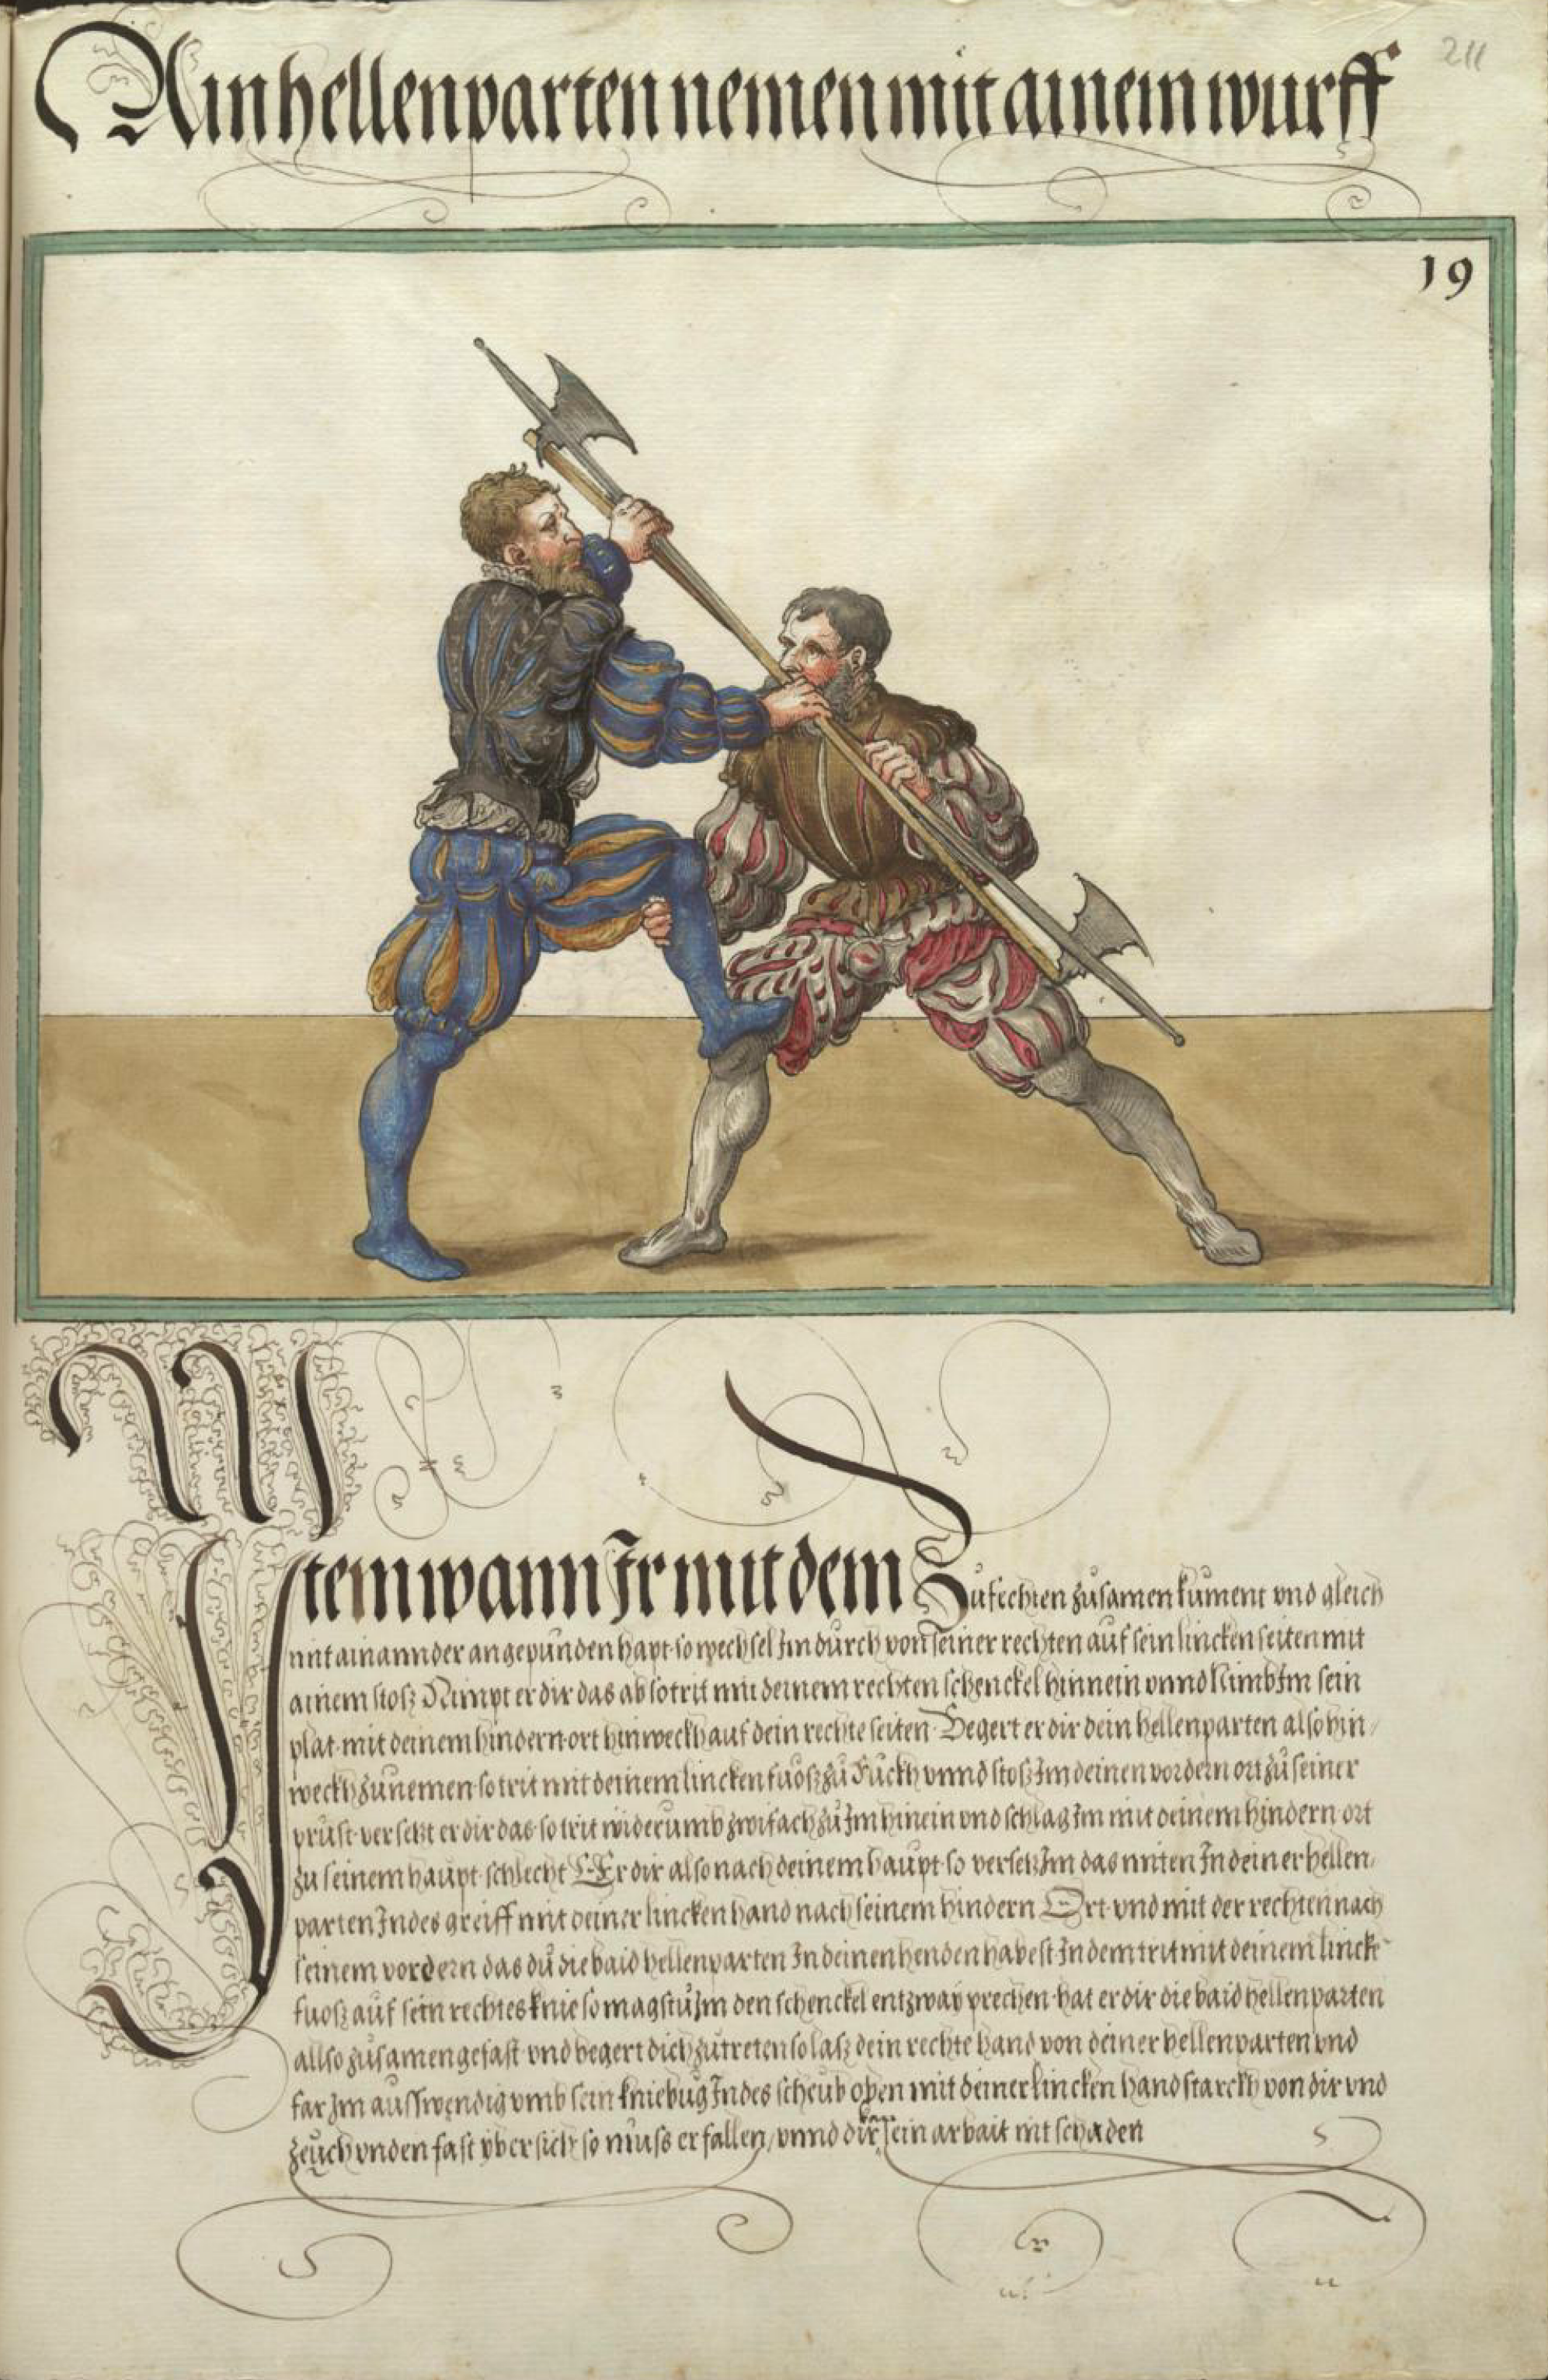 211
Ain hellenparten nemen mit ainem wurff
19
Item wann Ir mit dem Zufechten zusamen kument vnd gleich
mit ainannder angepunden hapt so wechsel Im durch von seiner rechten auf sein lincken seiten mit
ainem stosz Nimpt er dir das ab so trit mit deinem rechten schenckel hinnein vnnd Nimb Im sein
plat mit deinem hindern ort hinweckh auf dein rechte seiten Begert er dir dein hellenparten also hin/
weckh zunemen so trit mit deinem lincken fuosz zu Ruckh vnnd stosz Im deinen vordern ort zu seiner
prust versetzt er dir das so trit widerumb zwifach zu Im hinein vnd schlag Im mit deinem hindern ort
zu seinem haupt schlecht Er dir also nach deinem haupt so versetz Im das miten In deiner hellen/
parten Indes greiff mit deiner lincken hand nach seinem hindern Ort vnd mit der rechten nach
seinem vordern das du die baid hellenparten In deinen henden habest In dem trit mit deinem lincke
fuosz auf sein rechtes knie so magstu Im den schenckel entzway prechen hat er dir die baid hellenparten
allso zusamen gefast vnd begert dich zutreten so lasz dein rechte hand von deiner hellenparten vnd
far Im ausswendig vmb sein kniebug Indes scheub oben mit deiner lincken hand starckh von dir vnd
zeuch vnden fast vber sich so muss er fallen / vnnd dir kan sein arbait nit schaden